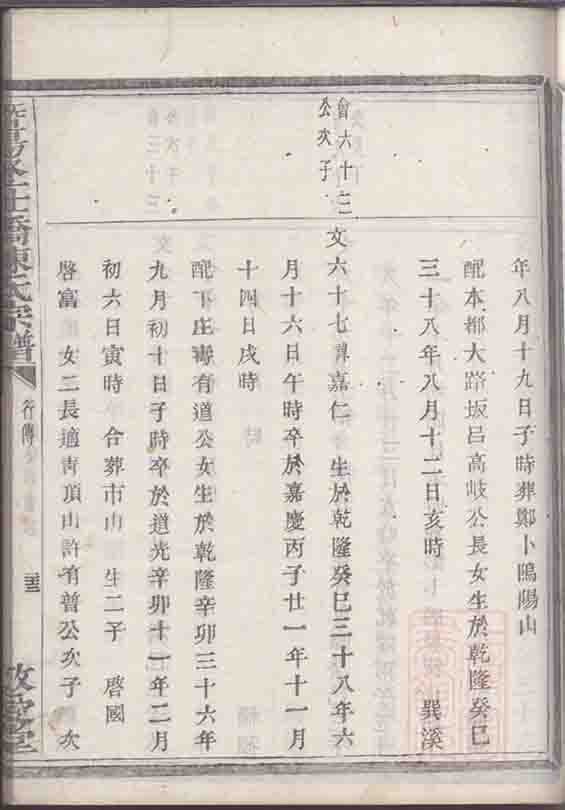 年八月十九日子時葬鄭卜鴎陽山
配本都大路坂呂高岐公長女生於乾隆癸巳
三十八年八月十二日亥時 巽溪
會六十二
公次子
文六十七諱嘉仁 生於乾隆癸巳三十八年六
月十六日午時卒於嘉慶丙子廿一年十一月
十四日戌時
配下庄壽有道公女生於乾隆辛卯三十六年
九月初十日子時卒於道光辛卯十一年二月
初六日寅時 合葬市山 生二子 啓國
啓富 女二長適靑頂山許有普公次子 次
橋陳氏宗譜
行傳